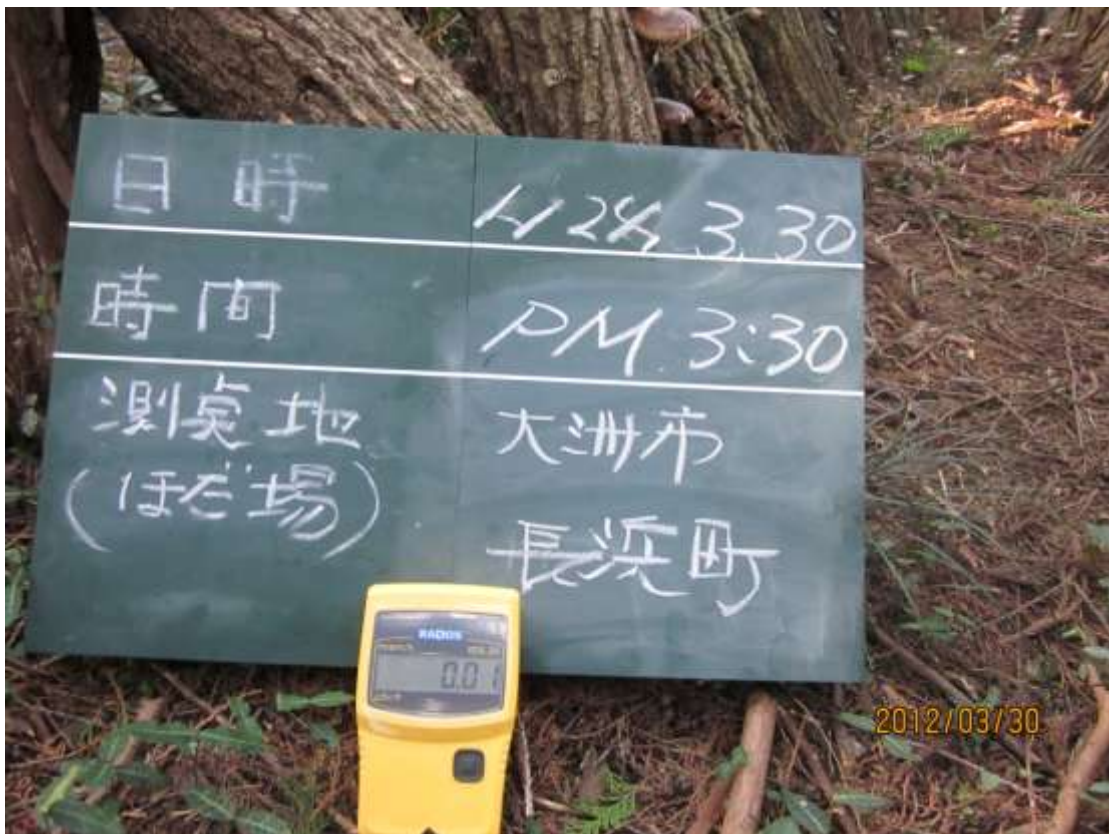 日時 H24.3.30
時間 PM.3:30
測点地 大洲市
(ほだ場) 長浜町
RADOS
0.01
2012/03/30